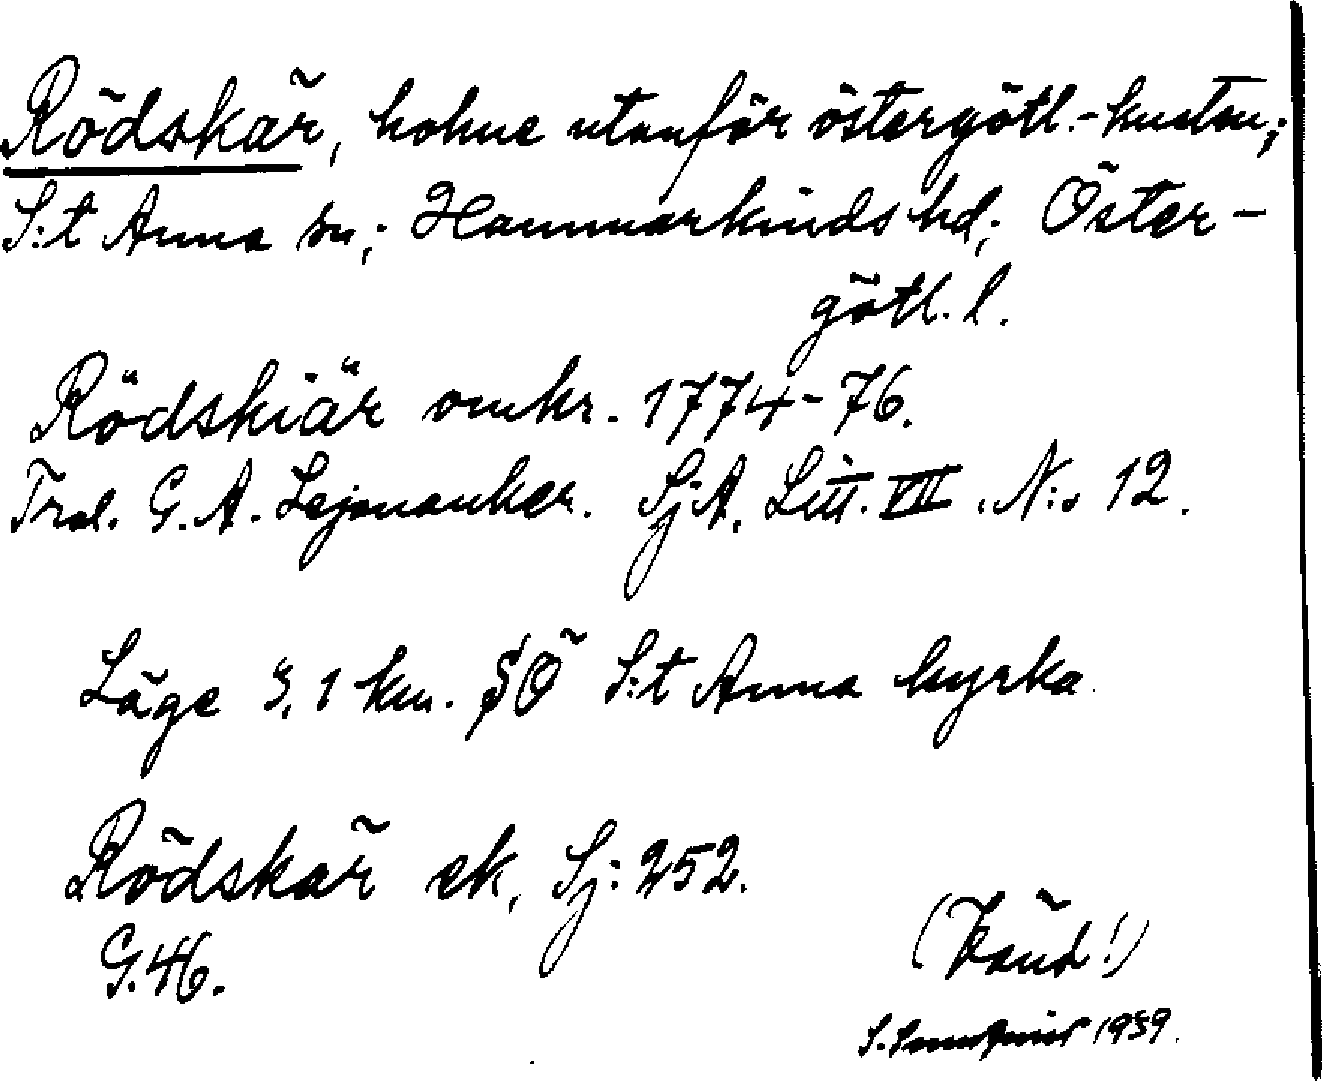 Rödskär, holme utanför östergötl.-kusten;
S:t Anna sn; Hammarkinds hd; Öster-
götl. l.
Rödskiär omkr. 1774-76.
Trol. G. A. Lejonanker. SjA. Litt. VII. N:o 12.
Läge 3,1 km. SÖ S:t Anna kyrka.
Rödskär ek, Sj: 252.
G.46.
(Vänd!)
S. 1939.